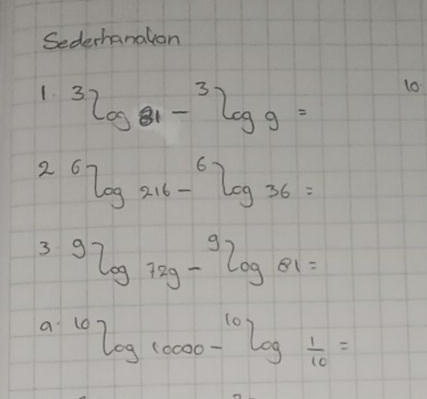 Sederhanakan
10
1. ³log 81 - ³log 9 =
2 ⁶log 216 - ⁶log 36 =
3 ⁹log 729 - ⁹log 81 =
a. ¹⁰log 10000 - ¹⁰log 1/10 =